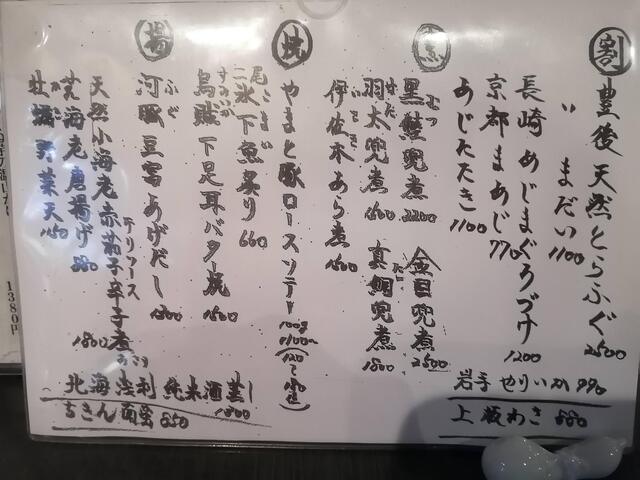 割
豊後 天然とらふぐ 2600
〃 まだい 1100
長崎 めじまぐろづけ 1200
京都 まあじ 770
あじたたき 1100
岩手 やりいか 990
上 板わさ 880
煮
黒鯥兜煮 2200
むつ
金目兜煮 2600
羽太兜煮 1600
はた
真鯛兜煮 1800
たい
伊佐木あら煮 1600
いさき
焼
やまと豚ロースソテー 100g 1100
二氷下魚炙り 660
尾 こまい
烏賊下足耳バター焼 1600
揚
河豚豆富あげだし 1300
ふぐ
天然小海老赤茄子辛子煮 1800
チリソース
芝海老唐揚げ 880
牡蠣野菜天 1150
かき
北海浅利 純米酒蒸し 1300
あさり
ちきん南蛮 850
1380円